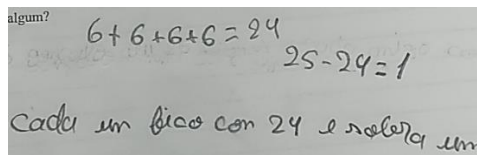 algum?
6+6+6+6=24
25-24=1
Cada um fico con 24 e sobra um